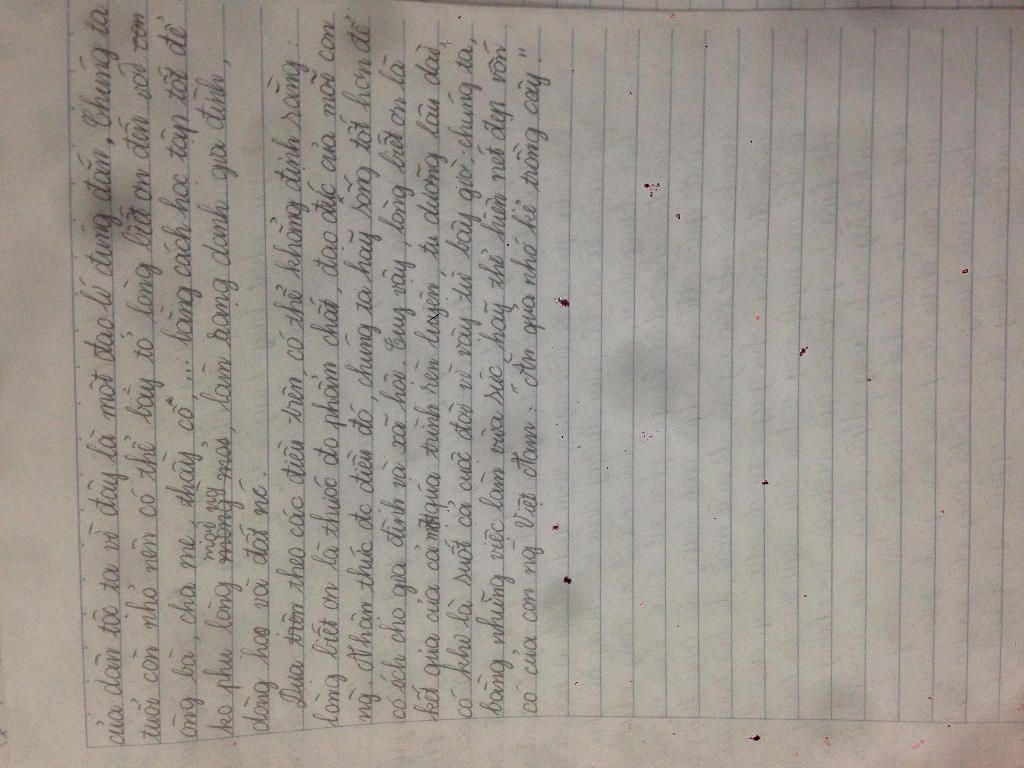 của dân tộc ta vì đây là một đạo lí đúng đắn. Chúng ta
tuổi còn nhỏ nên có thể bày tỏ lòng biết ơn đến với con
ông bà, cha mẹ, thầy cô,... bằng cách học tập tốt để
ko phụ lòng mọi ng, làm rạng danh gia đình,
dòng họ và đất nc.
Dựa trên theo các điều trên, có thể khẳng định rằng:
lòng biết ơn là thước đo phẩm chất, đạo đức của mỗi con
ng. Nhận thức đc điều đó, chúng ta hãy sống tốt hơn để
có ích cho gia đình và xã hội. Tuy vậy, lòng biết ơn là
kết quả của cả quá trình rèn luyện, tu dưỡng lâu dài
có khi là suốt cả cuộc đời vì vậy từ bây giờ, chúng ta,
bằng những việc làm vừa sức hãy thể hiện nét đẹp vốn
có của con ng Việt Nam: "Ăn quả nhớ kẻ trồng cây".